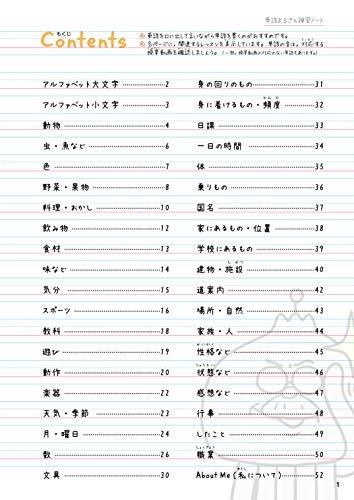 単語まるごと練習ノート
もくじ
Contents
単語を口に出して言いながら単語を書くのがおすすめです。
各ページに、関連するレッスンを表示しています。単語の音は、対応する
授業動画を確認しましょう。
アルファベット大文字 2
アルファベット小文字 3
動物 4
虫・魚など 6
色 7
野菜・果物 8
料理・おかし 10
飲み物 12
食材 13
味など 14
気分 15
スポーツ 16
教科 18
遊び 19
動作 20
楽器 22
天気・季節 23
月・曜日 24
数 26
文具 30
身の回りのもの 31
身に着けるもの・頻度 32
日課 33
一日の時間 34
体 35
乗りもの 36
国名 37
家にあるもの・位置 38
学校にあるもの 39
建物・施設 40
道案内 42
場所・自然 43
家族・人 44
性格など 45
状態など 46
感想など 47
行事 48
したこと 49
職業 50
About Me (私について) 52
1